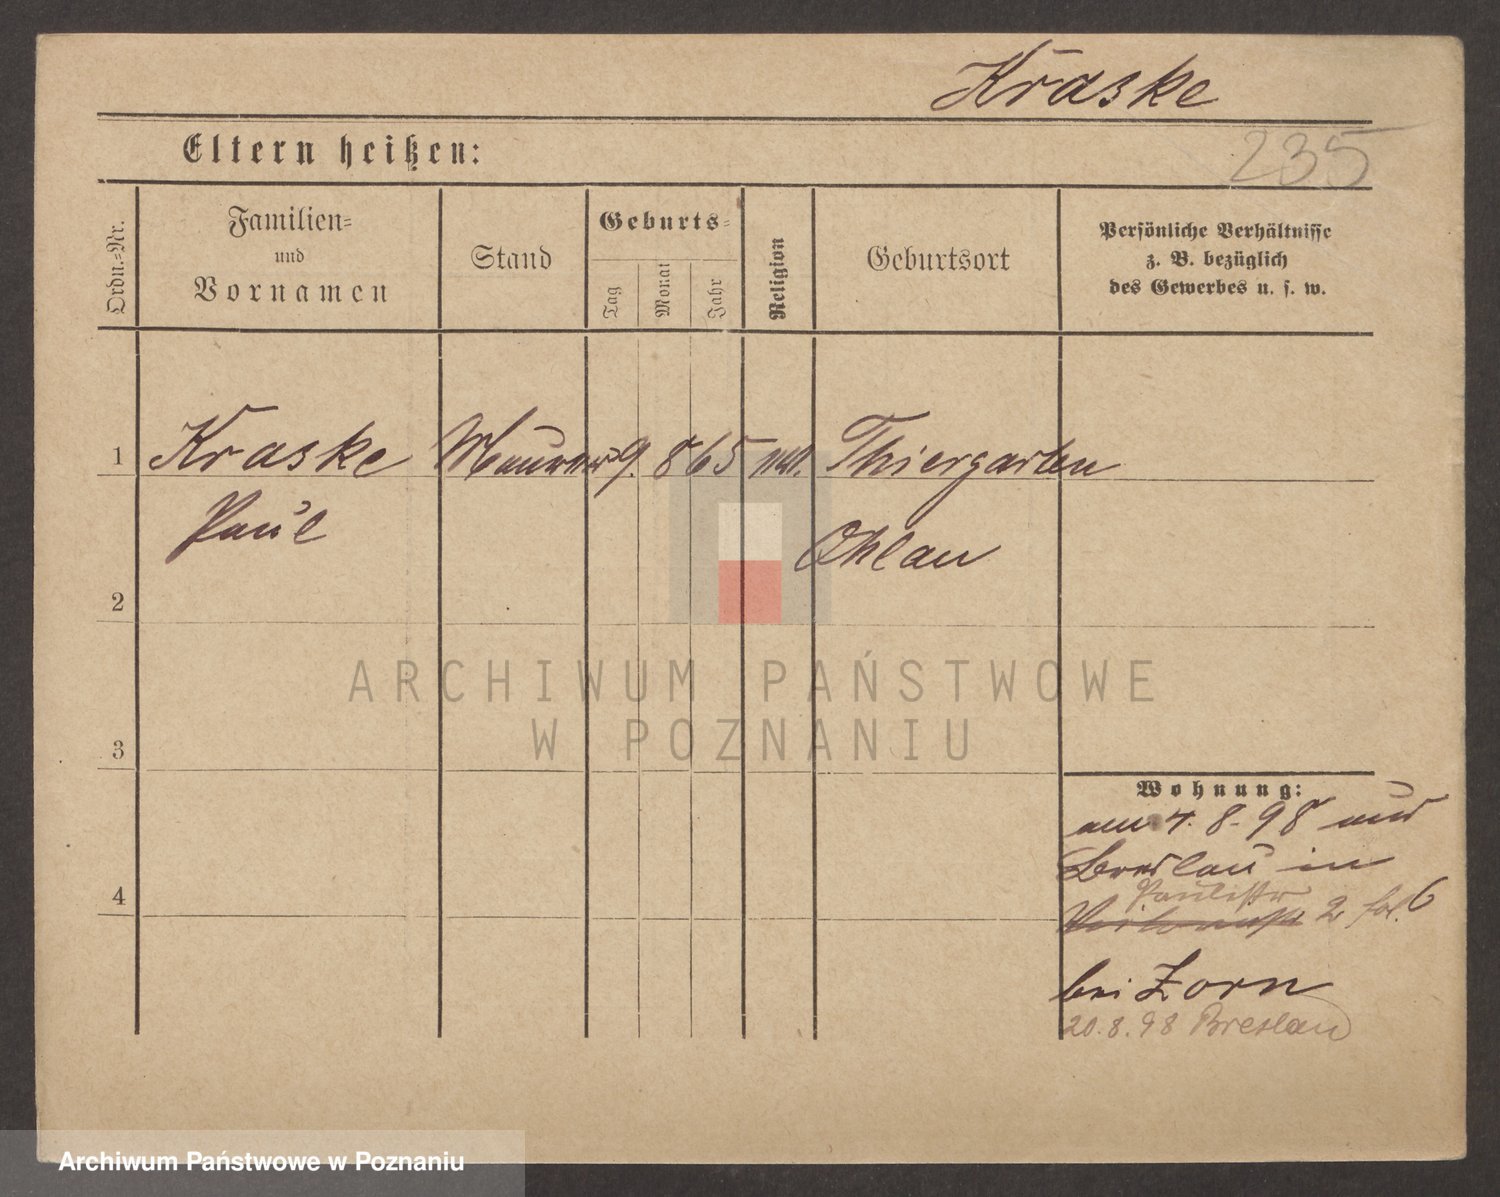 Kraske
235
Eltern heißen:
Ordn.=Nr.
Familien=
und
Vornamen
Stand
Geburts=
Tag
Monat
Jahr
Religion
Geburtsort
Persönliche Verhältnisse
z. B. bezüglich
des Gewerbes u. s. w.
1 Kraske Maurer 9. 8 65 Thiergarten
Paul Ohlau
2
3
4
ARCHIWUM PAŃSTWOWE
W POZNANIU
Wohnung:
am 4. 8. 98 aus
Breslau in
Paulistr
2 fol. 6
bei Zorn
20. 8. 98 Breslau
Archiwum Państwowe w Poznaniu